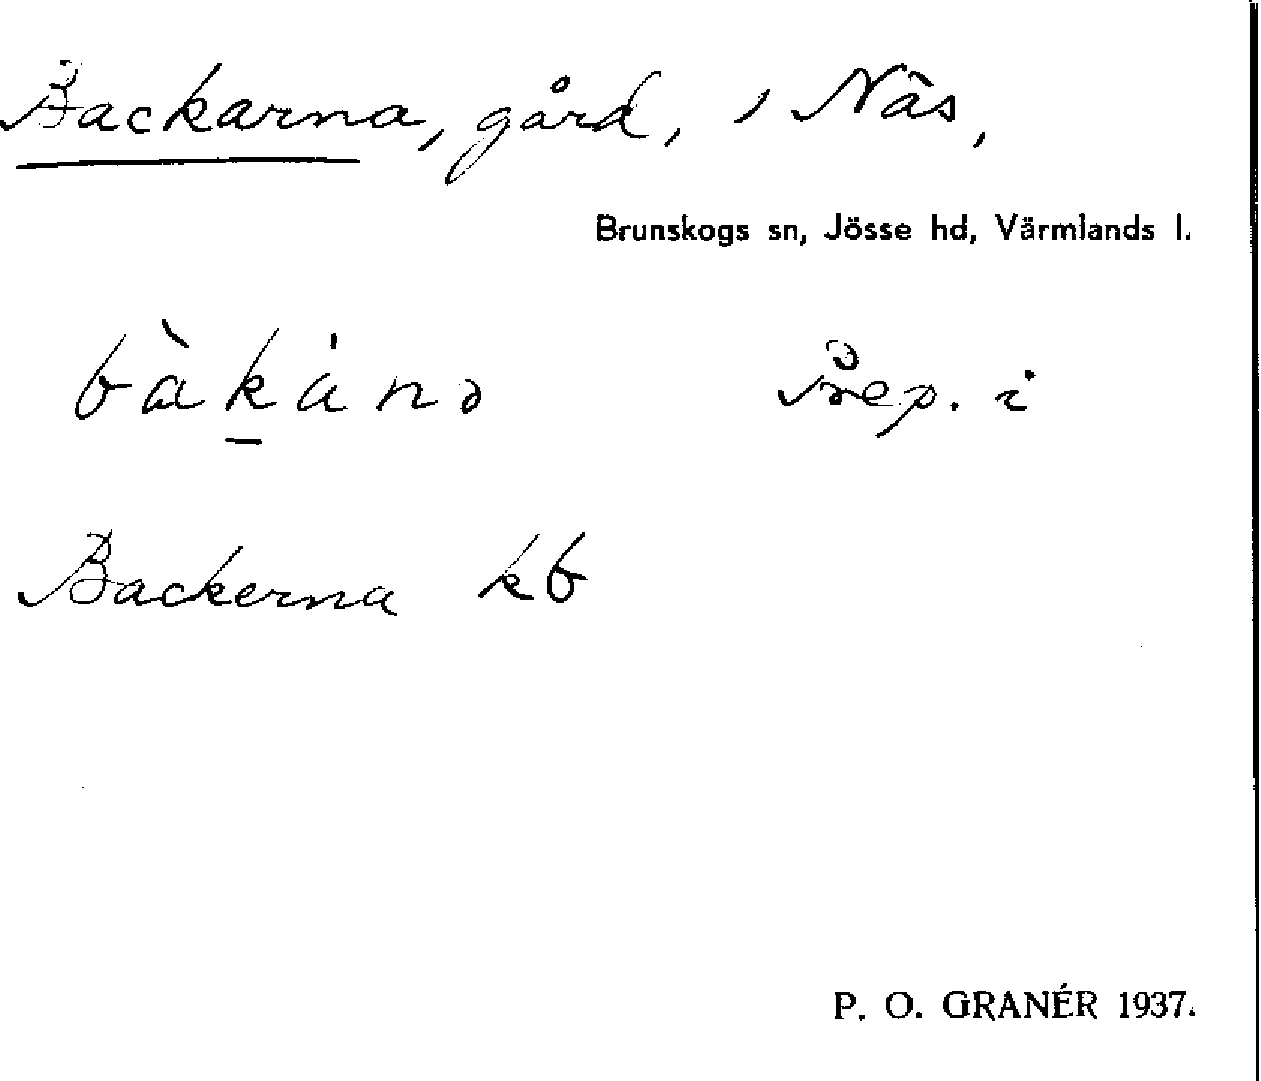 Backarna, gård, i Näs,
Brunskogs sn, Jösse hd, Värmlands l.
bàk̲ánə prep. i
Backerna kb
P. O. GRANÉR 1937.